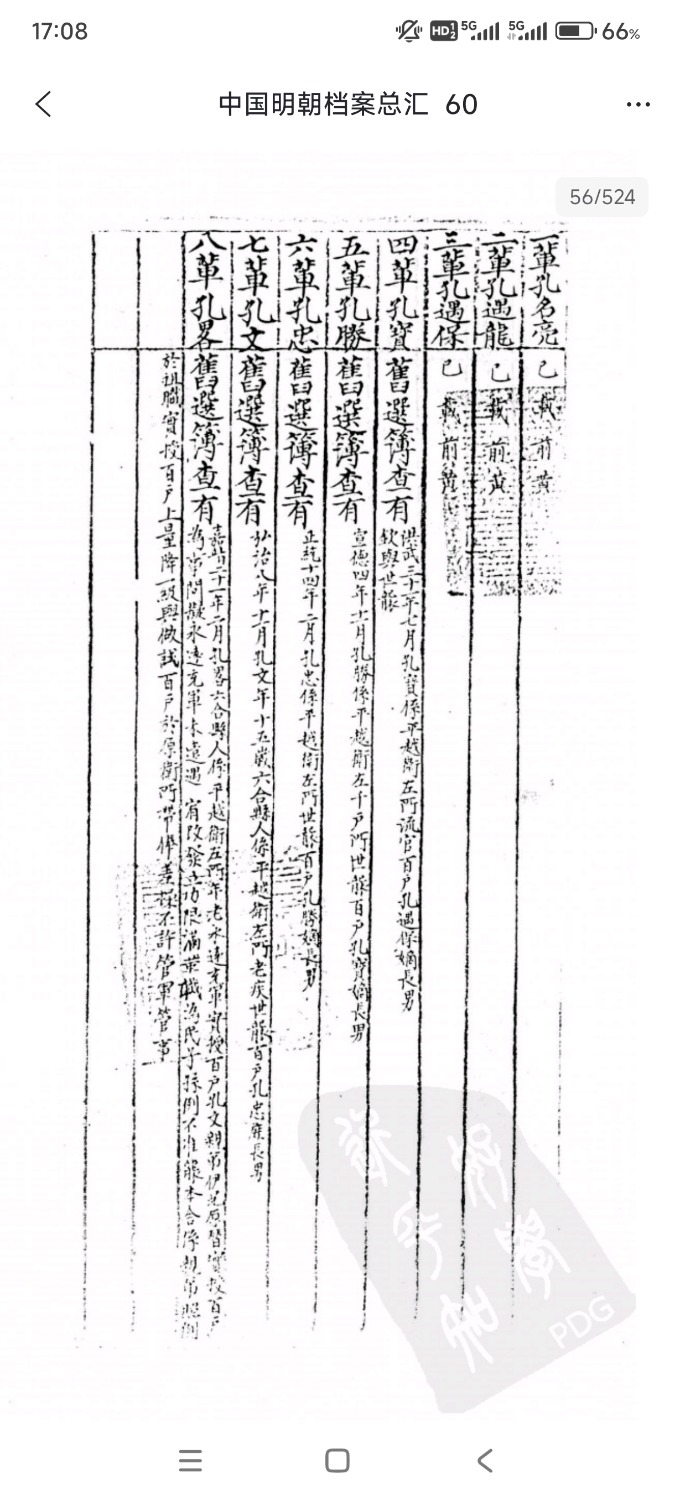 17:08
HD 1 2 5G 5G 66%
中国明朝档案总汇 60
56/524
一輩孔名亮 已載前黄
二輩孔遇龍 已載前黄
三輩孔遇保 已載前黄
四輩孔寶 舊選簿查有 洪武三十一年七月孔寶係平越衛左所流官百户孔遇保嫡長男
欽與世襲
五輩孔勝 舊選簿查有 宣德四年十一月孔勝係平越衛左千户所世襲百户孔寶嫡長男
六輩孔忠 舊選簿查有 正統十四年二月孔忠係平越衛左所世襲百户孔勝嫡長男
七輩孔文 舊選簿查有 弘治八年十一月孔文年十五歲六合縣人係平越衛左所老疾世襲百户孔忠庶長男
八輩孔畧 舊選簿查有 嘉靖二十一年二月孔畧六合縣人係平越衛左所年老永遠充軍實授百户孔文親弟伊兄原替實授百户
為事問擬永遠充軍未遣遇宥改發立功限滿革職為民子孫例不准襲本合係親弟照例
於祖職實授百户上量降一級與做試百户於原衛所帶俸差操不許管軍管事
PDG